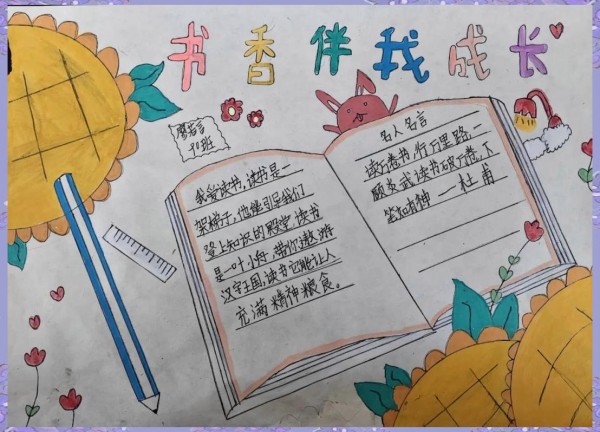 书香伴我成长
廖若言
10班
我爱读书,读书是一
架梯子,他能引导我们
登上知识的殿堂读书
是一叶小舟,带你遨游
汉字王国,读书它能让人
充满精神粮食。
名人名言
读万卷书,行万里路,一
读书破万卷,下
笔如有神 — 杜甫